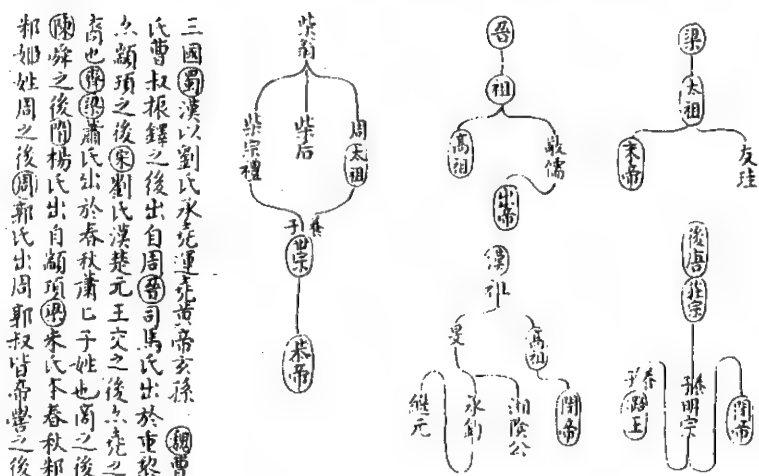 梁
太祖
友珪
末帝
後唐
莊宗
閔帝
養子明宗
養子潞王
晉
祖
敬儒
高祖
出帝
漢
祖
高祖
旻
隱帝
湘陰公
承鈞
繼元
柴翁
周太祖
柴后
柴宗禮
養子
世宗
恭帝
三國蜀漢以劉氏承堯運堯黄帝玄孫 魏曹
氏曹叔振鐸之後出自周晉司馬氏出於重黎
亦顓頊之後宋劉氏漢楚元王交之後亦堯之
裔也齊梁蕭氏出於春秋蕭亡子姓也商之後
陳舜之後隋楊氏出自顓頊梁朱氏本春秋邾
邾姬姓周之後周郭氏出周郭叔皆帝嚳之後